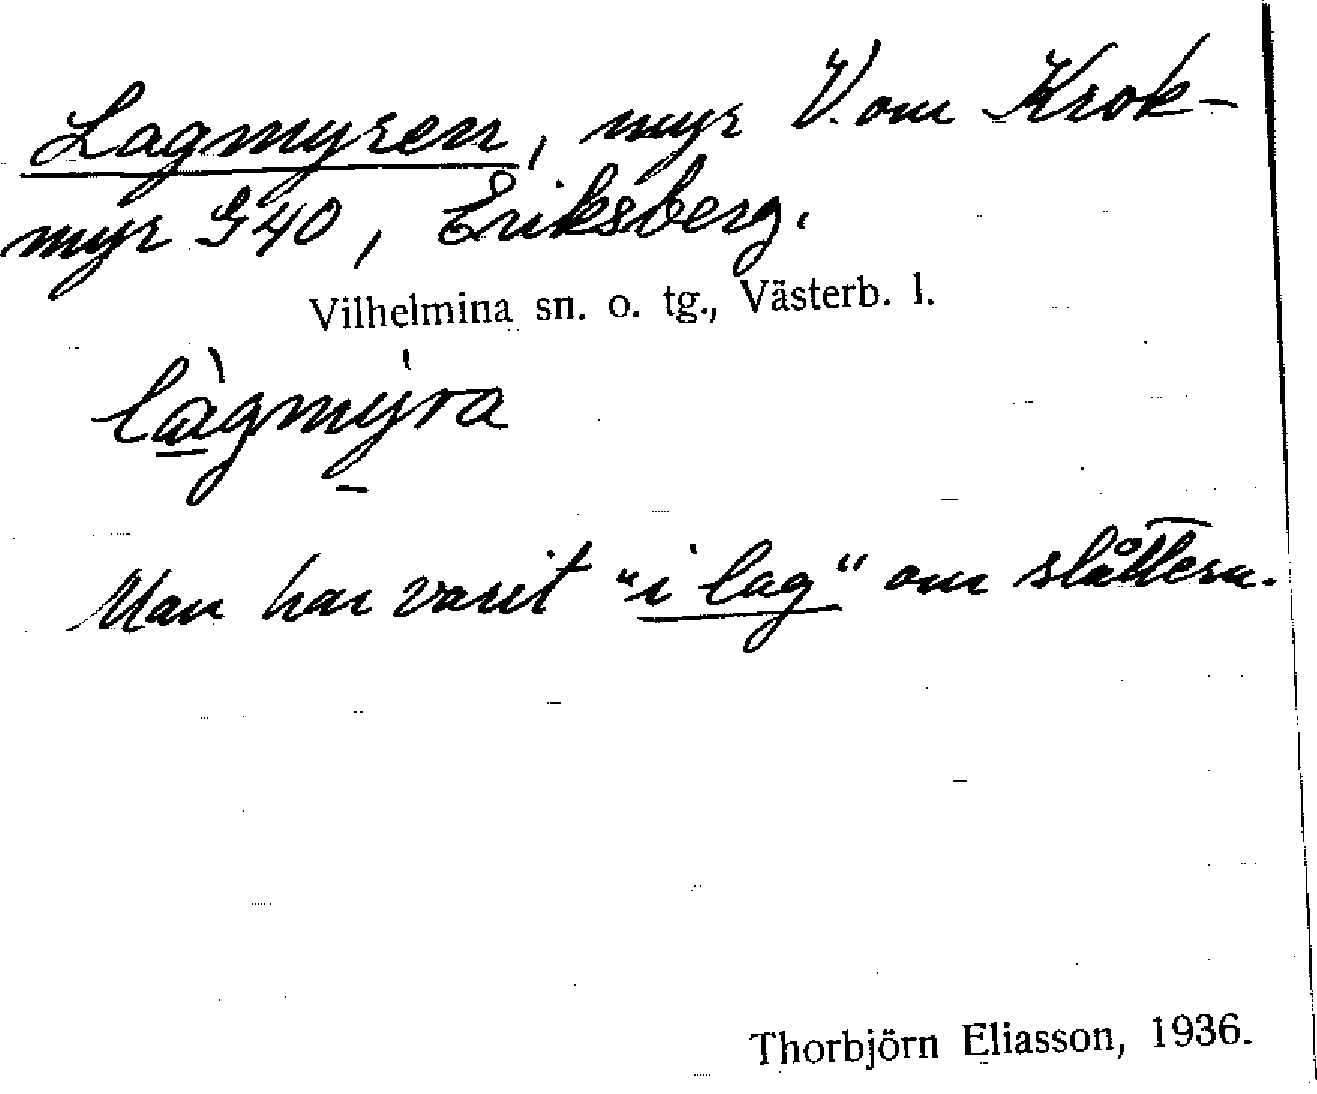 Lagmyren, myr V. om Krok-
myr G40, Eriksberg.
Vilhelmina sn. o. tg., Västerb. l.
làgmy̍ra
Man har varit "i lag" om slåttern.
Thorbjörn Eliasson, 1936.